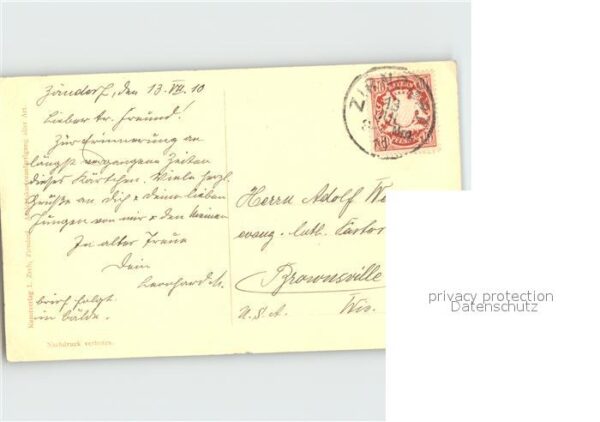 Zirndorf, den 13. VII. 10
Lieber tr. Freund!
Zur Erinnerung an
längst vergangene Zeiten
dieses Kärtchen. Viele herzl.
Grüße an Dich & deine lieben
Jungen von mir & den
In alter Treue
Dein
Leonhard
brief folgt
in bälde.
Herrn Adolf We
evang. luth. Pastor
Brownsville
U.S.A. Wis.
Nachdruck verboten.
Kunstverlag L. Zech,
privacy protection
Datenschutz